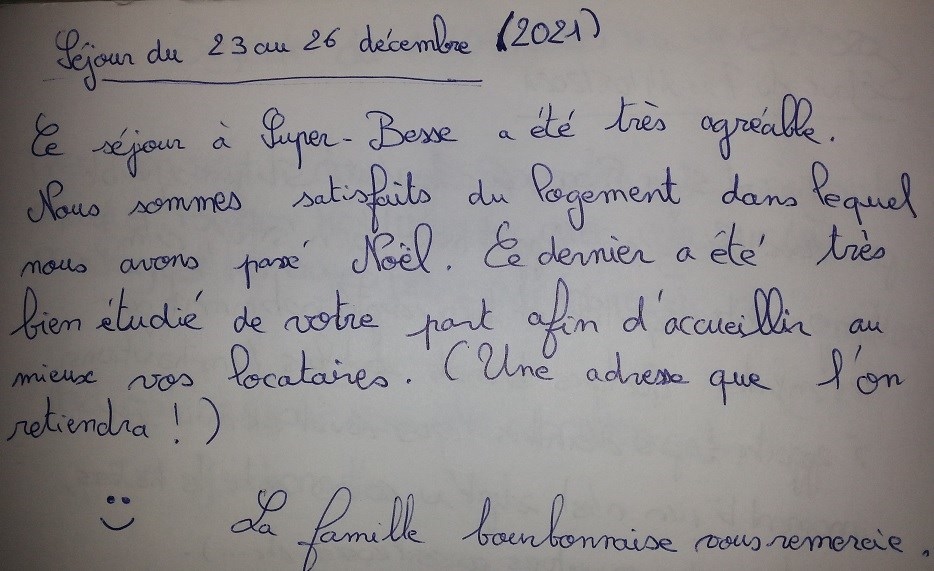 Séjour du 23 au 26 décembre (2021)
Ce séjour à Super-Besse a été très agréable.
Nous sommes satisfaits du logement dans lequel
nous avons passé Noël. Ce dernier a été très
bien étudié de votre part afin d'accueillir au
mieux vos locataires. (Une adresse que l'on
retiendra !)
La famille bourbonnaise vous remercie.